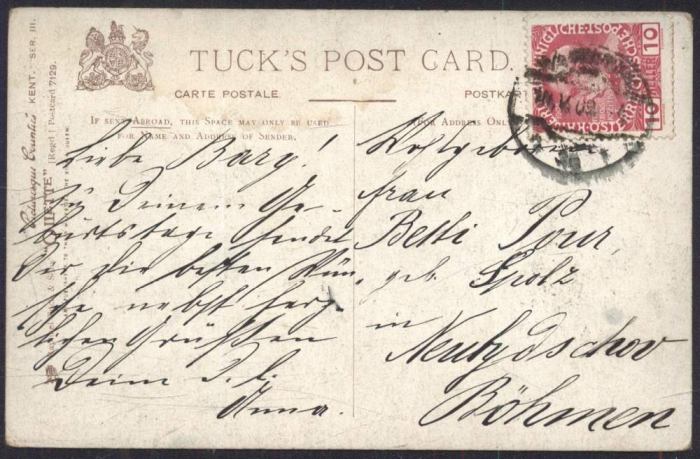 TUCK'S POST CARD.
CARTE POSTALE.
POSTKAR
IF SENT ABROAD, THIS SPACE MAY ONLY BE USED
FOR NAME AND ADDRESS OF SENDER.
FOR ADDRESS ONLY
Picturesque Counties KENT. SER. III.
"OILETTE" [Regd.] Postcard 7129.
Liebe Barg!
Zu Deinem Ge-
burtstage sendet
Dir die besten Wün-
sche nebst herz-
lichen Grüßen
Deine
Anna.
Wohlgeboren
Frau
Betti Pour,
geb.
in
Neubydschov
Böhmen
10
HELLER
10